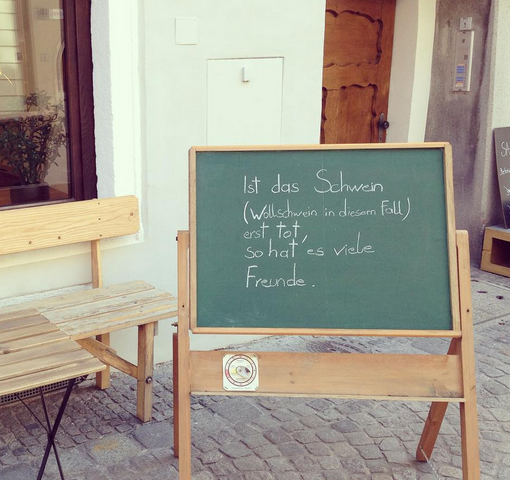 Ist das Schwein
(Wollschwein in diesem Fall)
erst tot,
so hat es viele
Freunde.